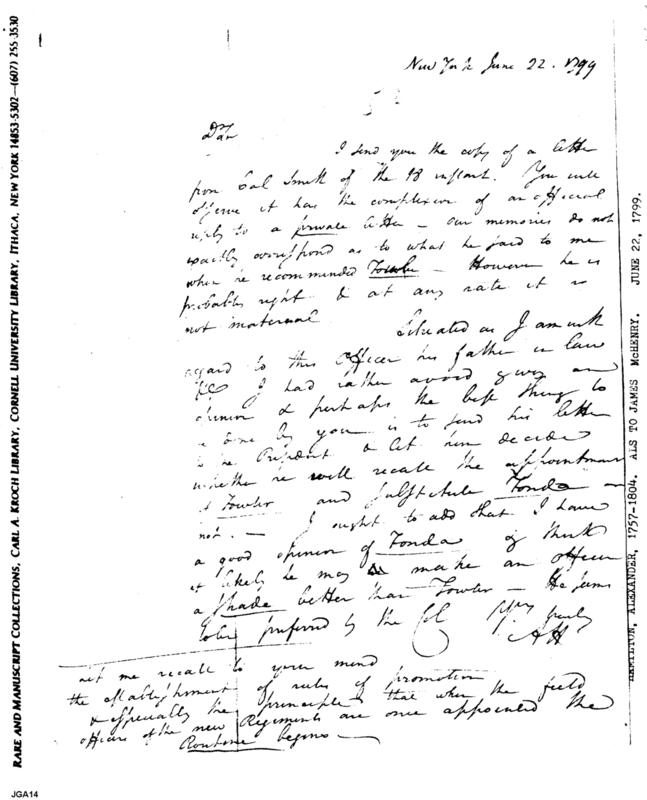 New York June 22. 1799
Dr Sir
I send you the copy of a letter
from Col Smith of the 18 instant. You will
observe it has the complexion of an official
reply to a private letter — our memories do not
exactly correspond as to what he said to me
when he recommended Fowler — However he is
probably right & at any rate it is
not material
Situated as I am with
regard to this Officer his father in law
I had rather avoid giving an
opinion & perhaps the best thing to
be done by you is to send his letter
to the President & let him decide
whether he will recall the appointment
of Fowler and substitute Fonda or
not. — I ought to add that I have
a good opinion of Fonda & think
it likely he may make an officer
a shade better than Fowler — He seems
to be preferred by the Col Yrs truly
AH
Let me recall to your mind
the establishment of rules of promotion
& especially the principle that when the field
officers of the new Regiments are once appointed the
Routine begins —
RARE AND MANUSCRIPT COLLECTIONS, CARL A. KROCH LIBRARY, CORNELL UNIVERSITY LIBRARY, ITHACA, NEW YORK 14853-5302—(607) 255-3530
HAMILTON, ALEXANDER, 1757-1804. ALS TO JAMES McHENRY. JUNE 22, 1799.
JGA14